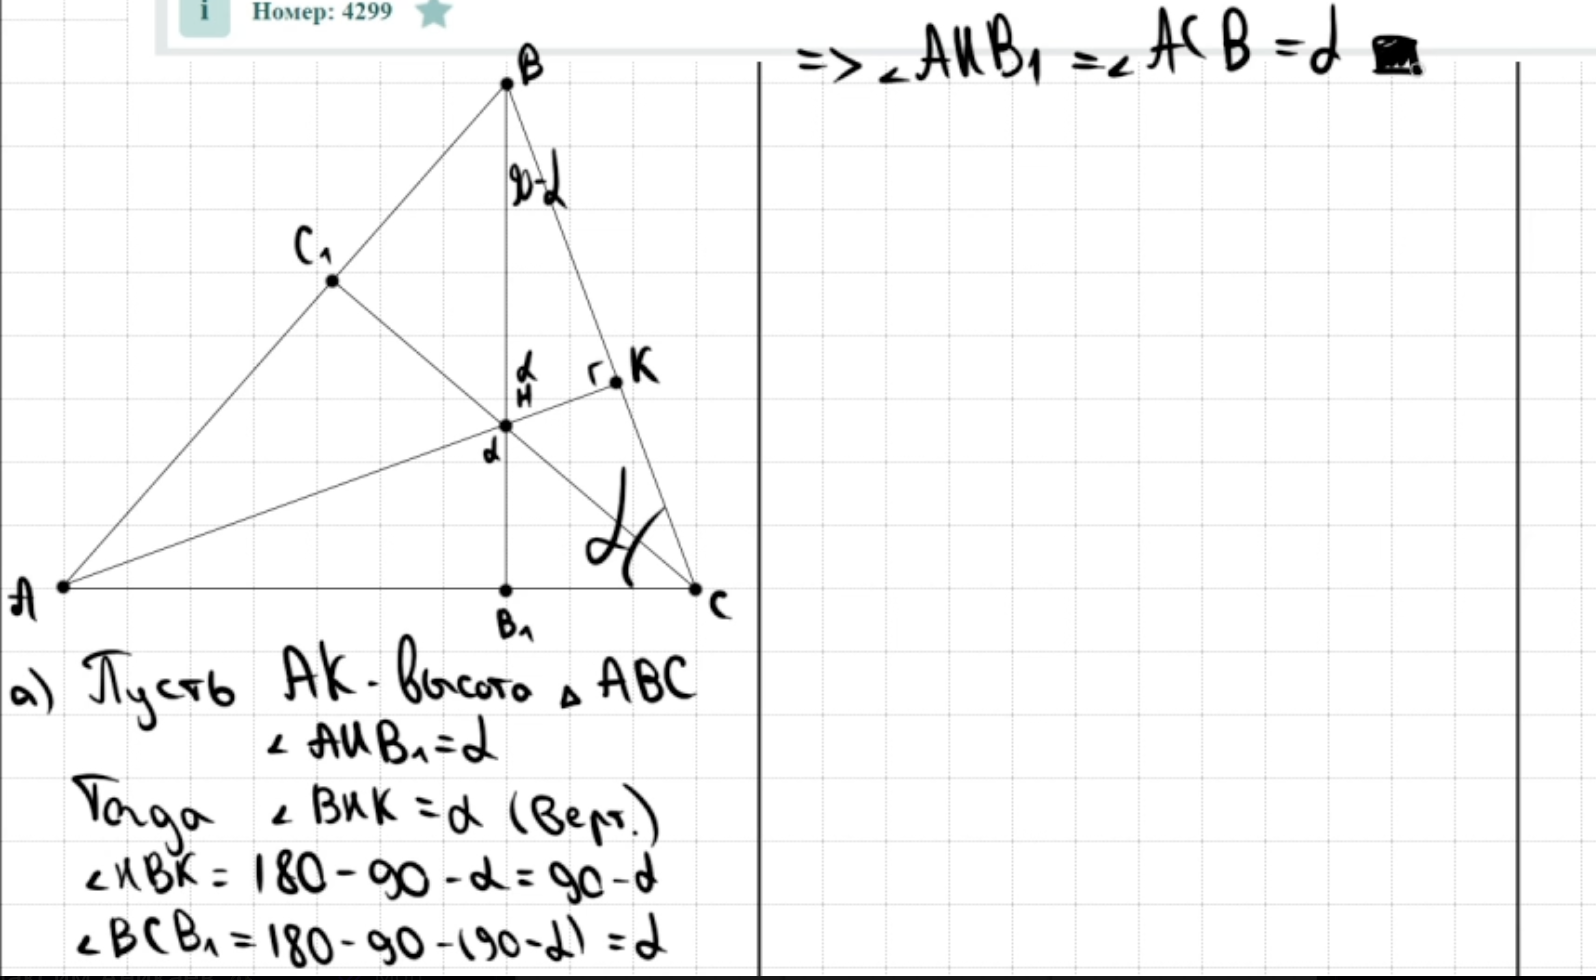 i Номер: 4299
=> ∠AHB₁ = ∠ACB = α
B
90-α
C₁
α
H
K
α
α
A
B₁
C
а) Пусть AK - высота △ ABC
∠ AHB₁ = α
Тогда ∠ BHK = α (Верт.)
∠HBK = 180 - 90 - α = 90 - α
∠BCB₁ = 180 - 90 - (90 - α) = α